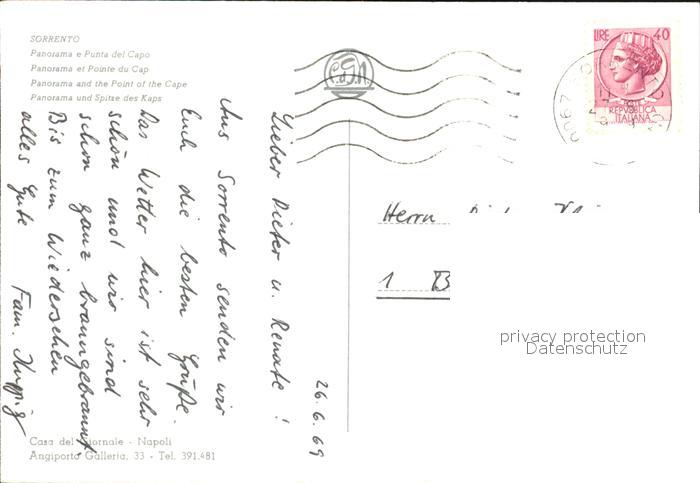 SORRENTO
Panorama e Punta del Capo
Panorama et Pointe du Cap
Panorama and the Point of the Cape
Panorama und Spitze des Kaps
26.6.69
Lieber Dieter u. Renate!
Aus Sorrento senden wir
Euch die besten Grüße.
Das Wetter hier ist sehr
schön und wir sind
schon ganz braungebrannt.
Bis zum Wiedersehen
alles Gute
Fam.
LIRE 40
REPUBBLICA
ITALIANA
Herrn
1 B
privacy protection
Datenschutz
Casa del Giornale - Napoli
Angiporto Galleria, 33 - Tel. 391.481